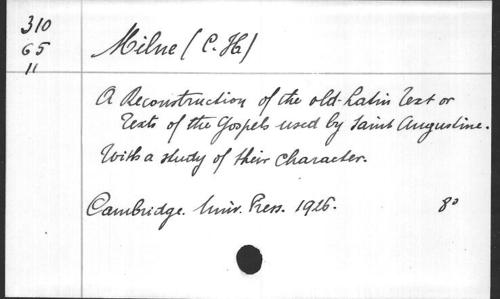 310
65
11
Milne (C. H.)
A Reconstruction of the old-Latin Text or
Texts of the Gospels used by Saint Augustine.
With a study of their character.
Cambridge. Univ. Press. 1926. 8°